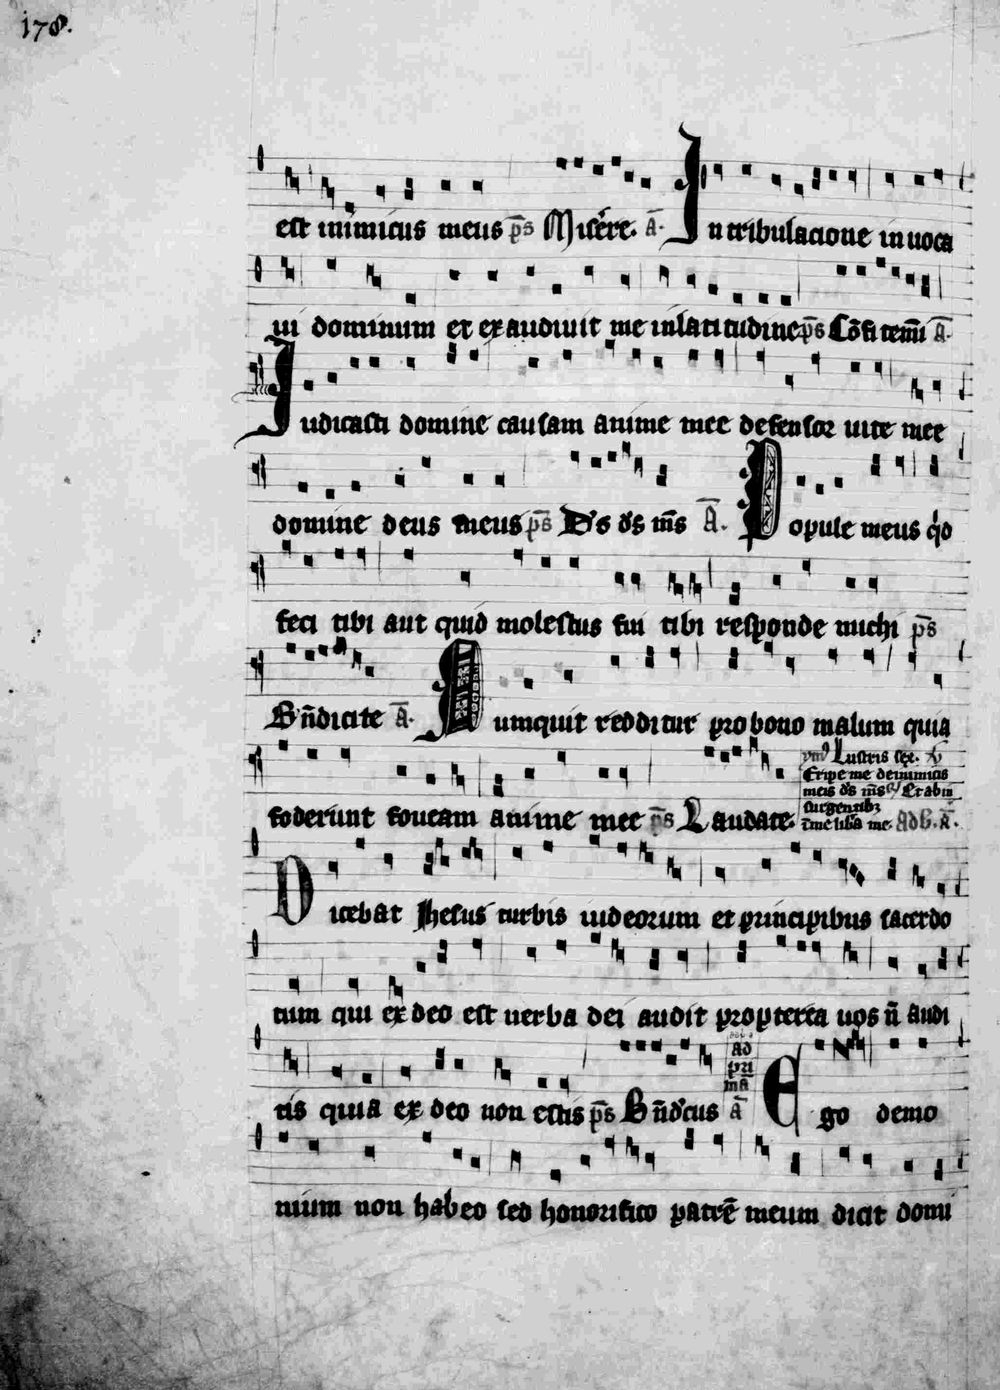 178.
est inimicus meus p̄s Misere. ā. In tribulacione inuoca
ui dominum et exaudiuit me inlatitudine p̄s Cōfitemī ā.
Iudicasti domine causam anime mee defensor uite mee
domine deus meus p̄s Ds ds m̄s Ā. Popule meus qd
feci tibi aut quid molestus fui tibi responde michi p̄s
Bn̄dicite Ā. Numquit redditur pro bono malum quia
foderunt foueam anime mee p̄s Laudate.
Lustris sex.
Eripe me deinimicis
meis ds m̄s Et ab in
surgentibz
Adb. ā.
Dicebat Jhesus turbis iudeorum et principibus sacerdo
tum qui ex deo est uerba dei audit propterea uos n̄ audi
tis quia ex deo non estis p̄s Bn̄dcus ā
ad
pri
mā
Ego demo
nium non habeo sed honorifico patrē meum dicit domi